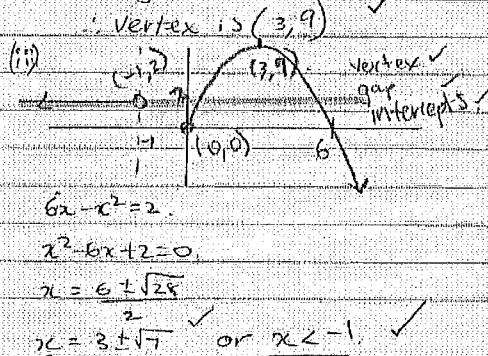 ∴ vertex is (3,9) ✓
(iii)
(-1,2)
(3,9)
vertex ✓
gap
intercepts ✓
-1
(0,0)
6
6x - x² = 2.
x² - 6x + 2 = 0.
x = (6 ± √28)/2
x = 3 ± √7 ✓ or x < -1. ✓